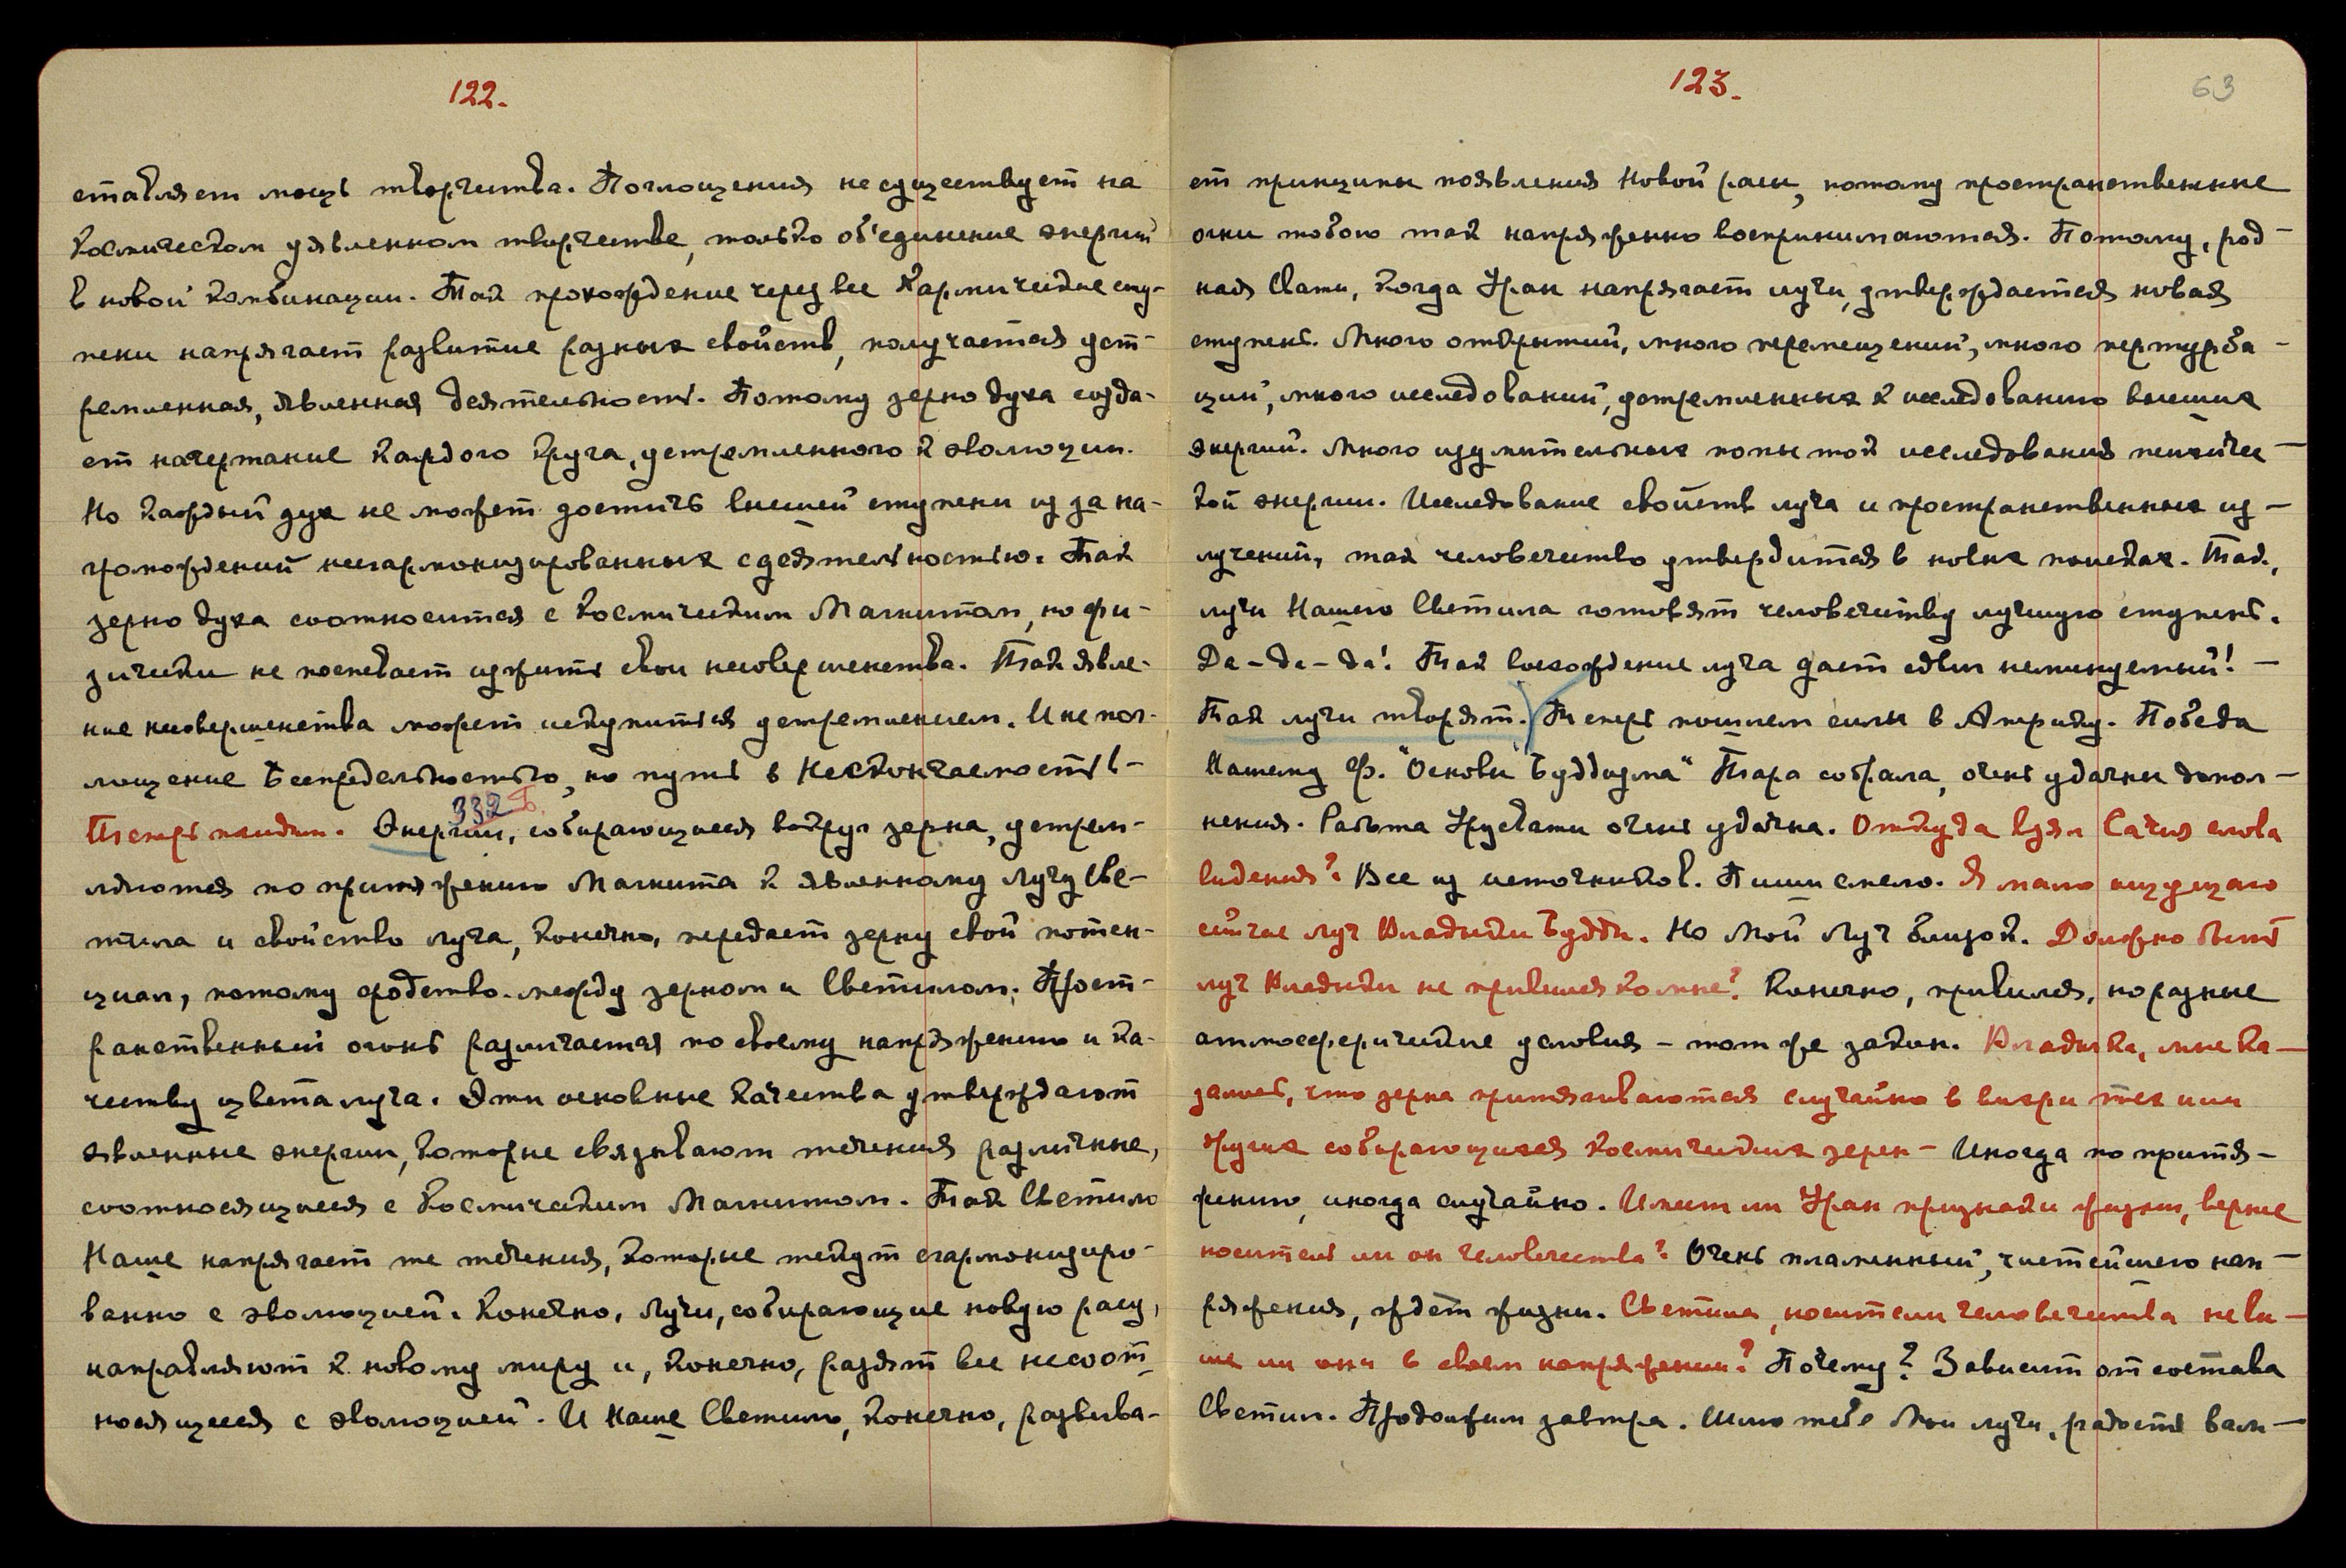 122.
ставляет мощь творчества. Поглощения не существует на
космическом уявленном творчестве, только об'единение энергий
в новой комбинации. Так прохождение через все Кармические сту-
пени напрягает развитие разных свойств, получается уст-
ремленная, явленная деятельность. Потому зерно духа созда-
ет начертание каждого круга, устремленного к эволюции.
Но каждый дух не может достичь высшей ступени из за на-
громождений несгармонизированных с деятельностью. Так
зерно духа соотносится с Космическим Магнитом, но фи-
зически не поспевает изжить свои несовершенства. Так явле-
ние несовершенства может искупиться устремлением. И не пог-
лощение Беспредельностью, но путь в Нескончаемость! -
332 Б.
Теперь пойдем. Энергии, собирающиеся вокруг зерна, устрем-
ляются по притяжению Магнита к явленному Лучу Све-
тила и свойство луча, конечно, передает зерну свой потен-
циал, потому сродство между зерном и Светилом. Прост-
ранственный огонь различается по своему напряжению и ка-
честву цвета луча. Эти основные качества утверждают
явленные энергии, которые связывают течения различные,
соотносящиеся с Космическим Магнитом. Так Светило
Наше напрягает те течения, которые текут сгармонизиро-
ванно с эволюцией. Конечно, Лучи, собирающие новую расу,
направляют к новому миру и, конечно, разят все несоот-
носящееся с эволюцией. И Наше Светило, конечно, развива-
123.
63
ет принципы появления Новой расы, потому пространственные
огни тобою так напряженно воспринимаются. Потому, род-
ная Свати, когда Уран напрягает лучи, утверждается новая
ступень. Много открытий, много перемещений, много пертурба-
ций, много исследований, устремленных к исследованию высших
энергий. Много изумительных попыток исследования психичес-
кой энергии. Исследование свойств луча и пространственных из-
лучений, так человечество утвердится в новых поисках. Так,
лучи Нашего Светила готовят человечеству лучшую ступень.
Да-да-да! Так восхождение луча дает сдвиг неминуемый! -
Так лучи творят. Теперь пошлем силы в Америку. Победа
Нашему Ф. "Основы Буддизма" Тара собрала, очень удачны допол-
нения. Работа Урусвати очень удачна. Откуда взял Сатия слова
видения? Все из источников. Пиши смело. Я мало ощущаю
сейчас луч Владыки Будды. Но Мой Луч близок. Должно быть
луч Владыки не привился ко мне? Конечно, привился, но разные
атмосферические условия - тот же закон. Владыка, мне ка-
залось, что зерна притягиваются случайно в вихри тех или
других собирающихся космических зерен - Иногда по притя-
жению, иногда случайно. Имеет ли Уран признаки жизни, вернее
носитель ли он человечества? Очень пламенный, чистейшего нап-
ряжения, ждёт жизни. Светила, носители человечества не вы-
ше ли они в своем напряжении? Почему? Зависит от состава
Светил. Продолжим завтра. Шлю тебе Мои лучи, радость вам -